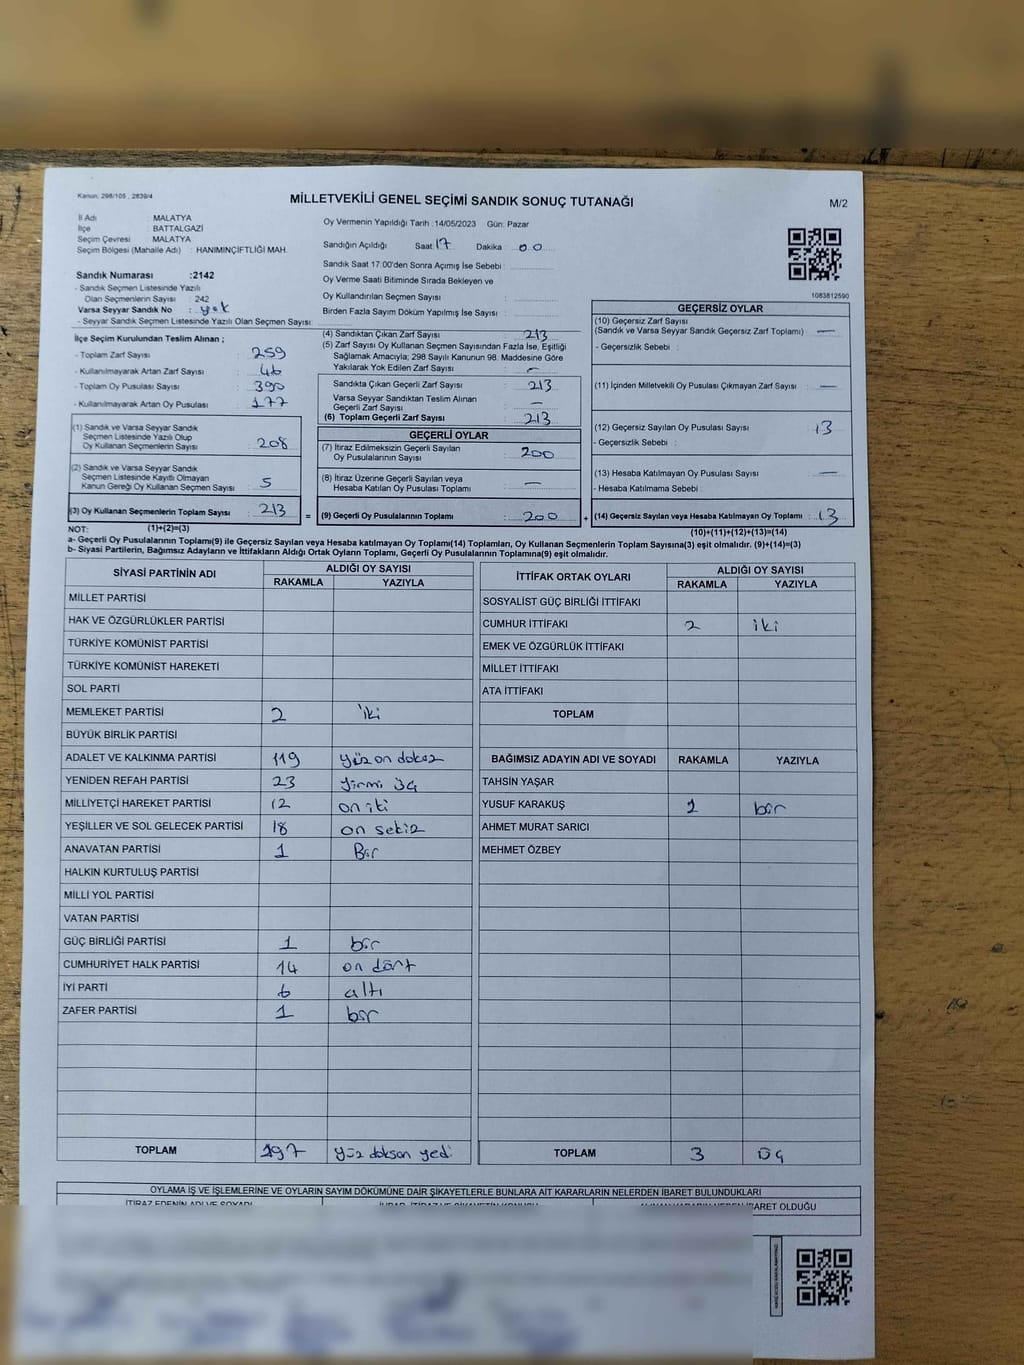 Kanun: 298/105 , 2839/4
MİLLETVEKİLİ GENEL SEÇİMİ SANDIK SONUÇ TUTANAĞI
M/2
İl Adı : MALATYA
İlçe : BATTALGAZİ
Seçim Çevresi : MALATYA
Seçim Bölgesi (Mahalle Adı) : HANIMINÇİFTLİĞİ MAH.
Oy Vermenin Yapıldığı Tarih :14/05/2023 Gün: Pazar
Sandığın Açıldığı Saat 17 Dakika : 00
Sandık Saat 17:00'den Sonra Açımış İse Sebebi :
Oy Verme Saati Bitiminde Sırada Bekleyen ve
Oy Kullandırılan Seçmen Sayısı :
Birden Fazla Sayım Döküm Yapılmış İse Sayısı :
Sandık Numarası :2142
- Sandık Seçmen Listesinde Yazılı
Olan Seçmenlerin Sayısı : 242
Varsa Seyyar Sandık No : yok
- Seyyar Sandık Seçmen Listesinde Yazılı Olan Seçmen Sayısı:
İlçe Seçim Kurulundan Teslim Alınan ;
- Toplam Zarf Sayısı : 259
- Kullanılmayarak Artan Zarf Sayısı : 46
- Toplam Oy Pusulası Sayısı : 390
- Kullanılmayarak Artan Oy Pusulası : 177
(1) Sandık ve Varsa Seyyar Sandık
Seçmen Listesinde Yazılı Olup
Oy Kullanan Seçmenlerin Sayısı : 208
(2) Sandık ve Varsa Seyyar Sandık
Seçmen Listesinde Kayıtlı Olmayan
Kanun Gereği Oy Kullanan Seçmen Sayısı : 5
(3) Oy Kullanan Seçmenlerin Toplam Sayısı : 213
(4) Sandıktan Çıkan Zarf Sayısı : 213
(5) Zarf Sayısı Oy Kullanan Seçmen Sayısından Fazla İse, Eşitliği
Sağlamak Amacıyla; 298 Sayılı Kanunun 98. Maddesine Göre
Yakılarak Yok Edilen Zarf Sayısı : -
Sandıkta Çıkan Geçerli Zarf Sayısı : 213
Varsa Seyyar Sandıktan Teslim Alınan
Geçerli Zarf Sayısı : -
(6) Toplam Geçerli Zarf Sayısı : 213
GEÇERLİ OYLAR
(7) İtiraz Edilmeksizin Geçerli Sayılan
Oy Pusulalarının Sayısı : 200
(8) İtiraz Üzerine Geçerli Sayılan veya
Hesaba Katılan Oy Pusulası Toplamı : -
= (9) Geçerli Oy Pusulalarının Toplamı : 200
1083812590
GEÇERSİZ OYLAR
(10) Geçersiz Zarf Sayısı
(Sandık ve Varsa Seyyar Sandık Geçersiz Zarf Toplamı) : -
- Geçersizlik Sebebi :
(11) İçinden Milletvekili Oy Pusulası Çıkmayan Zarf Sayısı : -
(12) Geçersiz Sayılan Oy Pusulası Sayısı : 13
- Geçersizlik Sebebi :
(13) Hesaba Katılmayan Oy Pusulası Sayısı : -
- Hesaba Katılmama Sebebi :
+ (14) Geçersiz Sayılan veya Hesaba Katılmayan Oy Toplamı : 13
NOT: (1)+(2)=(3) (10)+(11)+(12)+(13)=(14)
a- Geçerli Oy Pusulalarının Toplamı(9) ile Geçersiz Sayılan veya Hesaba katılmayan Oy Toplamı(14) Toplamları, Oy Kullanan Seçmenlerin Toplam Sayısına(3) eşit olmalıdır. (9)+(14)=(3)
b- Siyasi Partilerin, Bağımsız Adayların ve İttifakların Aldığı Ortak Oyların Toplamı, Geçerli Oy Pusulalarının Toplamına(9) eşit olmalıdır.
SİYASİ PARTİNİN ADI ALDIĞI OY SAYISI
RAKAMLA YAZIYLA
MİLLET PARTİSİ
HAK VE ÖZGÜRLÜKLER PARTİSİ
TÜRKİYE KOMÜNİST PARTİSİ
TÜRKİYE KOMÜNİST HAREKETİ
SOL PARTİ
MEMLEKET PARTİSİ 2 iki
BÜYÜK BİRLİK PARTİSİ
ADALET VE KALKINMA PARTİSİ 119 yüz on dokuz
YENİDEN REFAH PARTİSİ 23 yirmi üç
MİLLİYETÇİ HAREKET PARTİSİ 12 on iki
YEŞİLLER VE SOL GELECEK PARTİSİ 18 on sekiz
ANAVATAN PARTİSİ 1 Bir
HALKIN KURTULUŞ PARTİSİ
MİLLİ YOL PARTİSİ
VATAN PARTİSİ
GÜÇ BİRLİĞİ PARTİSİ 1 bir
CUMHURİYET HALK PARTİSİ 14 on dört
İYİ PARTİ 6 altı
ZAFER PARTİSİ 1 bir
TOPLAM 197 yüz doksan yedi
İTTİFAK ORTAK OYLARI ALDIĞI OY SAYISI
RAKAMLA YAZIYLA
SOSYALİST GÜÇ BİRLİĞİ İTTİFAKI
CUMHUR İTTİFAKI 2 iki
EMEK VE ÖZGÜRLÜK İTTİFAKI
MİLLET İTTİFAKI
ATA İTTİFAKI
TOPLAM
BAĞIMSIZ ADAYIN ADI VE SOYADI RAKAMLA YAZIYLA
TAHSİN YAŞAR
YUSUF KARAKUŞ 1 bir
AHMET MURAT SARICI
MEHMET ÖZBEY
TOPLAM 3 üç
OYLAMA İŞ VE İŞLEMLERİNE VE OYLARIN SAYIM DÖKÜMÜNE DAİR ŞİKAYETLERLE BUNLARA AİT KARARLARIN NELERDEN İBARET BULUNDUKLARI
İTİRAZ EDENİN ADI VE SOYADI